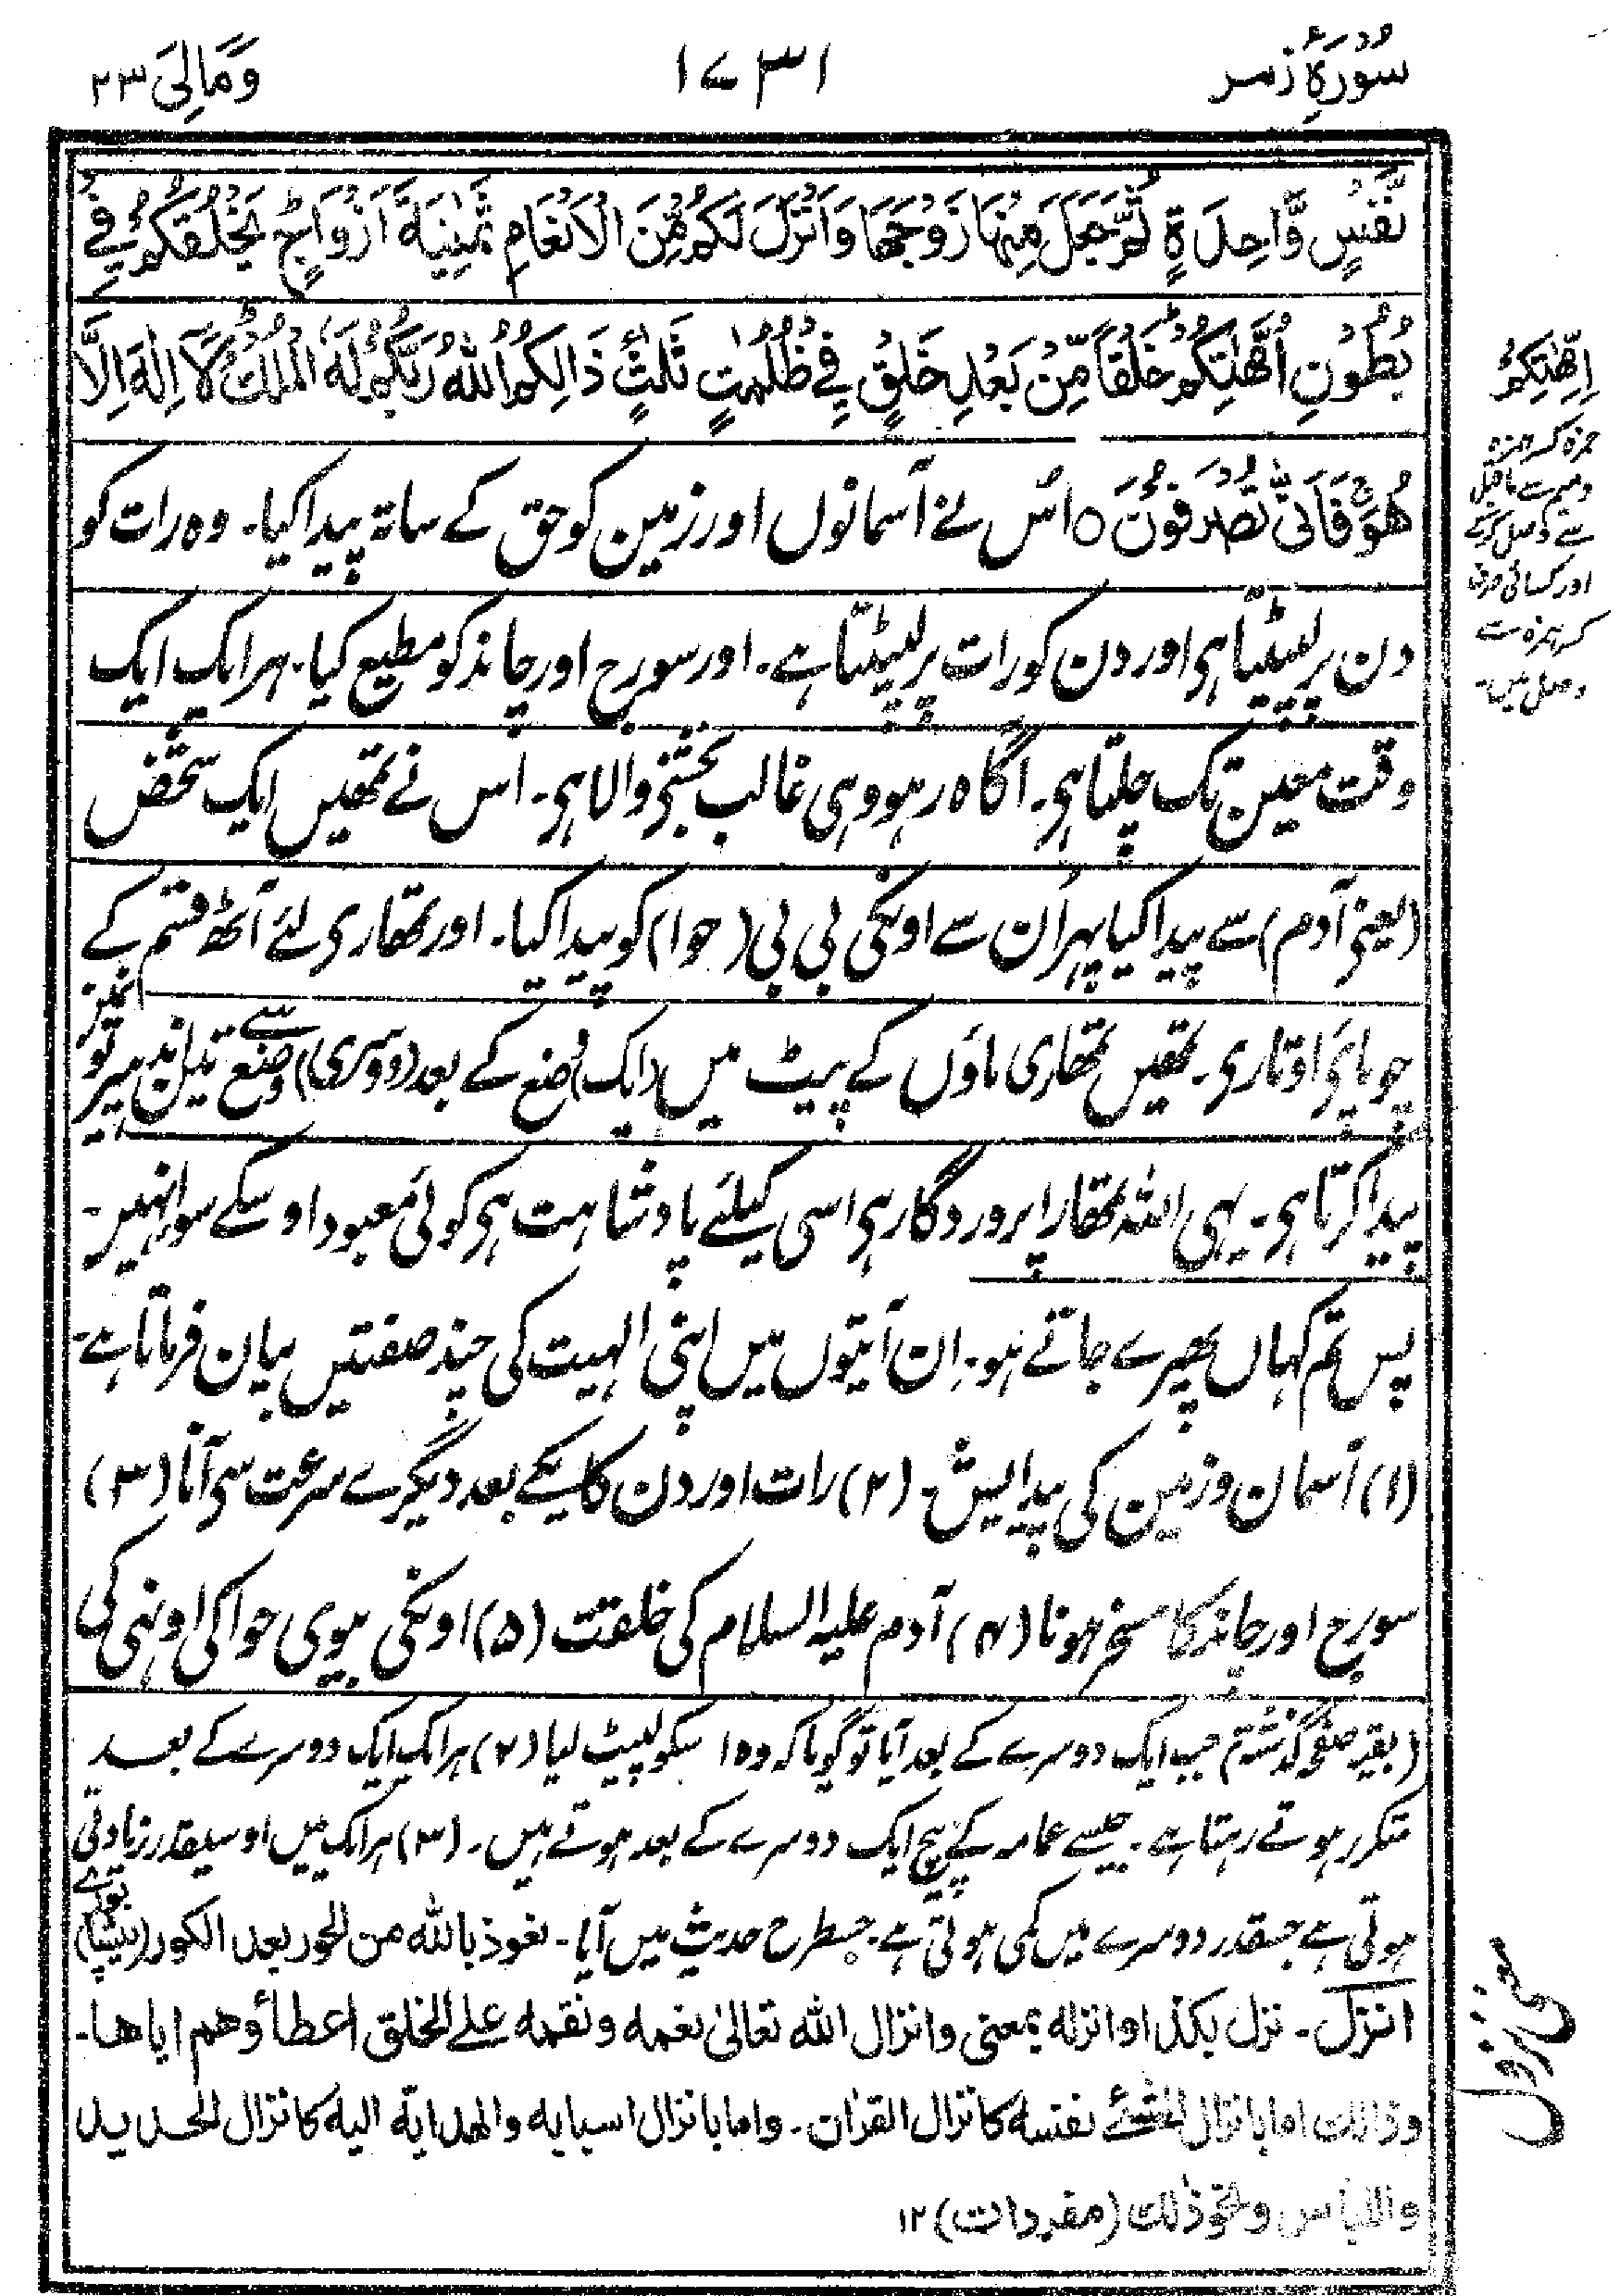 سُوْرَۂِ زمر
۱۷۳۱
وَمَالِیَ ۲۳
نَّفْسٍ وَّاحِدَةٍ ثُمَّ جَعَلَ مِنْهَا زَوْجَهَا وَاَنْزَلَ لَكُمْ مِّنَ الْاَنْعَامِ ثَمٰنِيَةَ اَزْوَاجٍ يَخْلُقُكُمْ فِيْ
بُطُوْنِ اُمَّهٰتِكُمْ خَلْقًا مِّنْ بَعْدِ خَلْقٍ فِيْ ظُلُمٰتٍ ثَلٰثٍ ذَالِكُمُ اللّٰهُ رَبُّكُمْ لَهُ الْمُلْكُ لَآ اِلٰهَ اِلَّا
هُوَ فَاَنّٰى تُصْرَفُوْنَ ○ اُس نے آسمانوں اور زمین کو حق کے ساتہ پیدا کیا۔ وہ رات کو
دن پر لپیٹتا ہی اور دن کو رات پر لپیٹتا ہے۔ اور سورج اور چاند کو مطیع کیا۔ ہر ایک ایک
وقت معین تک چلتا ہی۔ آگاہ رہو وہی غالب بخشنے والا ہی۔ اُس نے تمھیں ایک شخص
(یعنی آدم) سے پیدا کیا پہر اُن سے اونکی بی بی (حوا) کو پیدا کیا۔ اور تمھاری لئے آٹھ قسم کے
چوپائے اوتاری۔ تمھیں تمھاری ماؤں کے پیٹ میں (ایک) وضع کے بعد (دوسری) وضع سے تین اندہیرو
نمیں
پیدا کرتا ہی۔ یہی اللہ تمھارا پروردگار ہی اسی کیلئے پادشاہت ہی کوئی معبود اوسکے سوا نہیں۔
پس تم کہاں پھیرے جاتے ہو۔ اِن آیتوں میں اپنی الہیت کی چند صفتیں بیان فرماتا ہے۔
(۱) آسمان و زمین کی پیدایش۔ (۲) رات اور دن کا یکے بعد دیگرے سرعت سی آنا (۳)
سورج اور چاند کا مسخر ہونا (۴) آدم علیہ السلام کی خلقت (۵) اونکی بیوی حوا کی اونہی کی
(بقیہ صفحہ گذشتہ) جب ایک دوسرے کے بعد آیا تو گویا کہ وہ اسکو لپیٹ لیا (۲) ہر ایک ایک دوسرے کے بعد
متکرر ہوتے رہتا ہے۔ جیسے عمامہ کے پیچ ایک دوسرے کے بعد ہوتے ہیں۔ (۳) ہر ایک میں اوسیقدر زیادتی
ہوتی ہے جسقدر دوسرے میں کمی ہوتی ہے۔ جسطرح حدیث میں آیا۔ نعوذ بالله من الحور بعد الكور
انزل۔ نزل بكذا وانزله بمعنی وانزال الله تعالیٰ نعمه ونقمه علے الخلق اعطاؤهم ایاها۔
وذالك اما بانزال الشئے نفسه كانزال القرآن۔ واما بانزال اسبابه والهداية اليه كانزال الحديد
واللباس ونحو ذلك (مفردات) ۱۲
اِمِّهٰتِكُمْ
حمزہ کسر ہمزہ
و میم سے ماقبل
سے وصل کرکے
اور کسائی صرف
کسر ہمزہ سے
وصل میں۔
معنی نزول